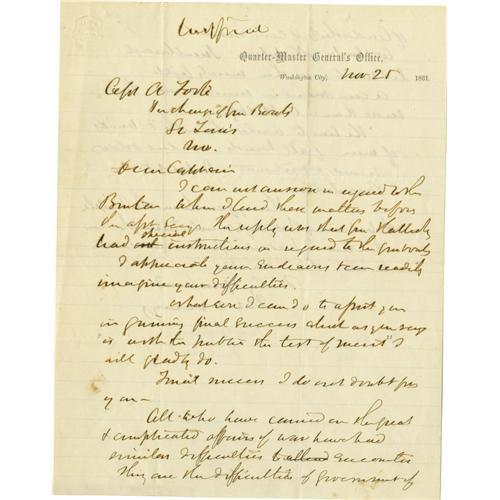 Quarter-Master General's Office,
Washington City, Nov 25 1861.
Capt A Foote
In charge of Gun Boats
St Louis
Mo.
Dear Captain
I can not answer in regard to the
when I laid these matters before
the reply was that Gen Halleck
had special instructions in regard to the gunboats
I appreciate your endeavors & can readily
imagine your difficulties.
Whatever I can do to assist you
in gaining final success which as you say
is with the public the test of merit I
will gladly do.
success I do not doubt for
you—
All who have carried on the great
& complicated affairs of war have had
similar difficulties to encounter
They are the difficulties of Government of